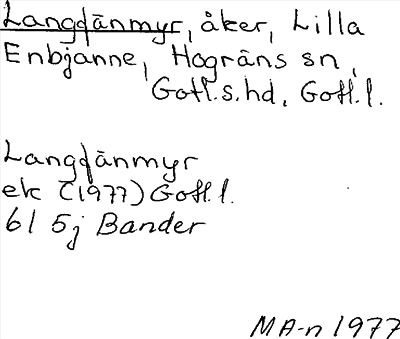 Langdänmyr, åker, Lilla
Enbjänne, Hogräns sn,
Gotl.s.hd, Gotl.l.
Langdänmyr
ek (1977) Gotl.l.
6I 5j Bander
MA-n 1977